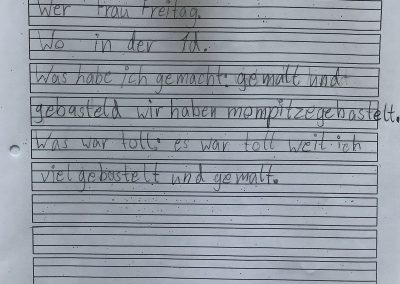 Wer Frau Freitag.
Wo in der 1d.
Was habe ich gemacht: gemalt und
gebasteld wir haben mompitzegebastelt.
Was war toll: es war toll weil ich
viel gebastelt und gemalt.